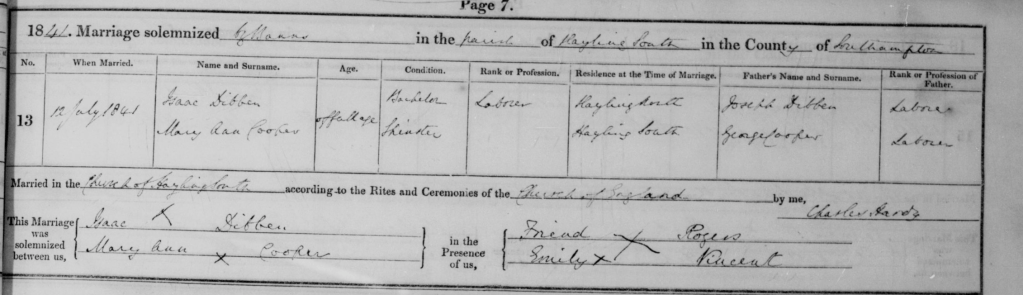 Page 7.
1841. Marriage solemnized by Banns in the parish of Hayling South in the County of Southampton
No. When Married. Name and Surname. Age. Condition. Rank or Profession. Residence at the Time of Marriage. Father's Name and Surname. Rank or Profession of Father.
13 12 July 1841 Isaac Dibben of full age Bachelor Laborer Hayling North Joseph Dibben Laborer
Mary Ann Cooper Spinster Hayling South George Cooper Laborer
Married in the Church of Hayling South according to the Rites and Ceremonies of the Church of England by me, Charles Hardy
This Marriage was solemnized between us, Isaac X Dibben in the Presence of us, Friend X Rogers
Mary Ann X Cooper Emily X Vincent